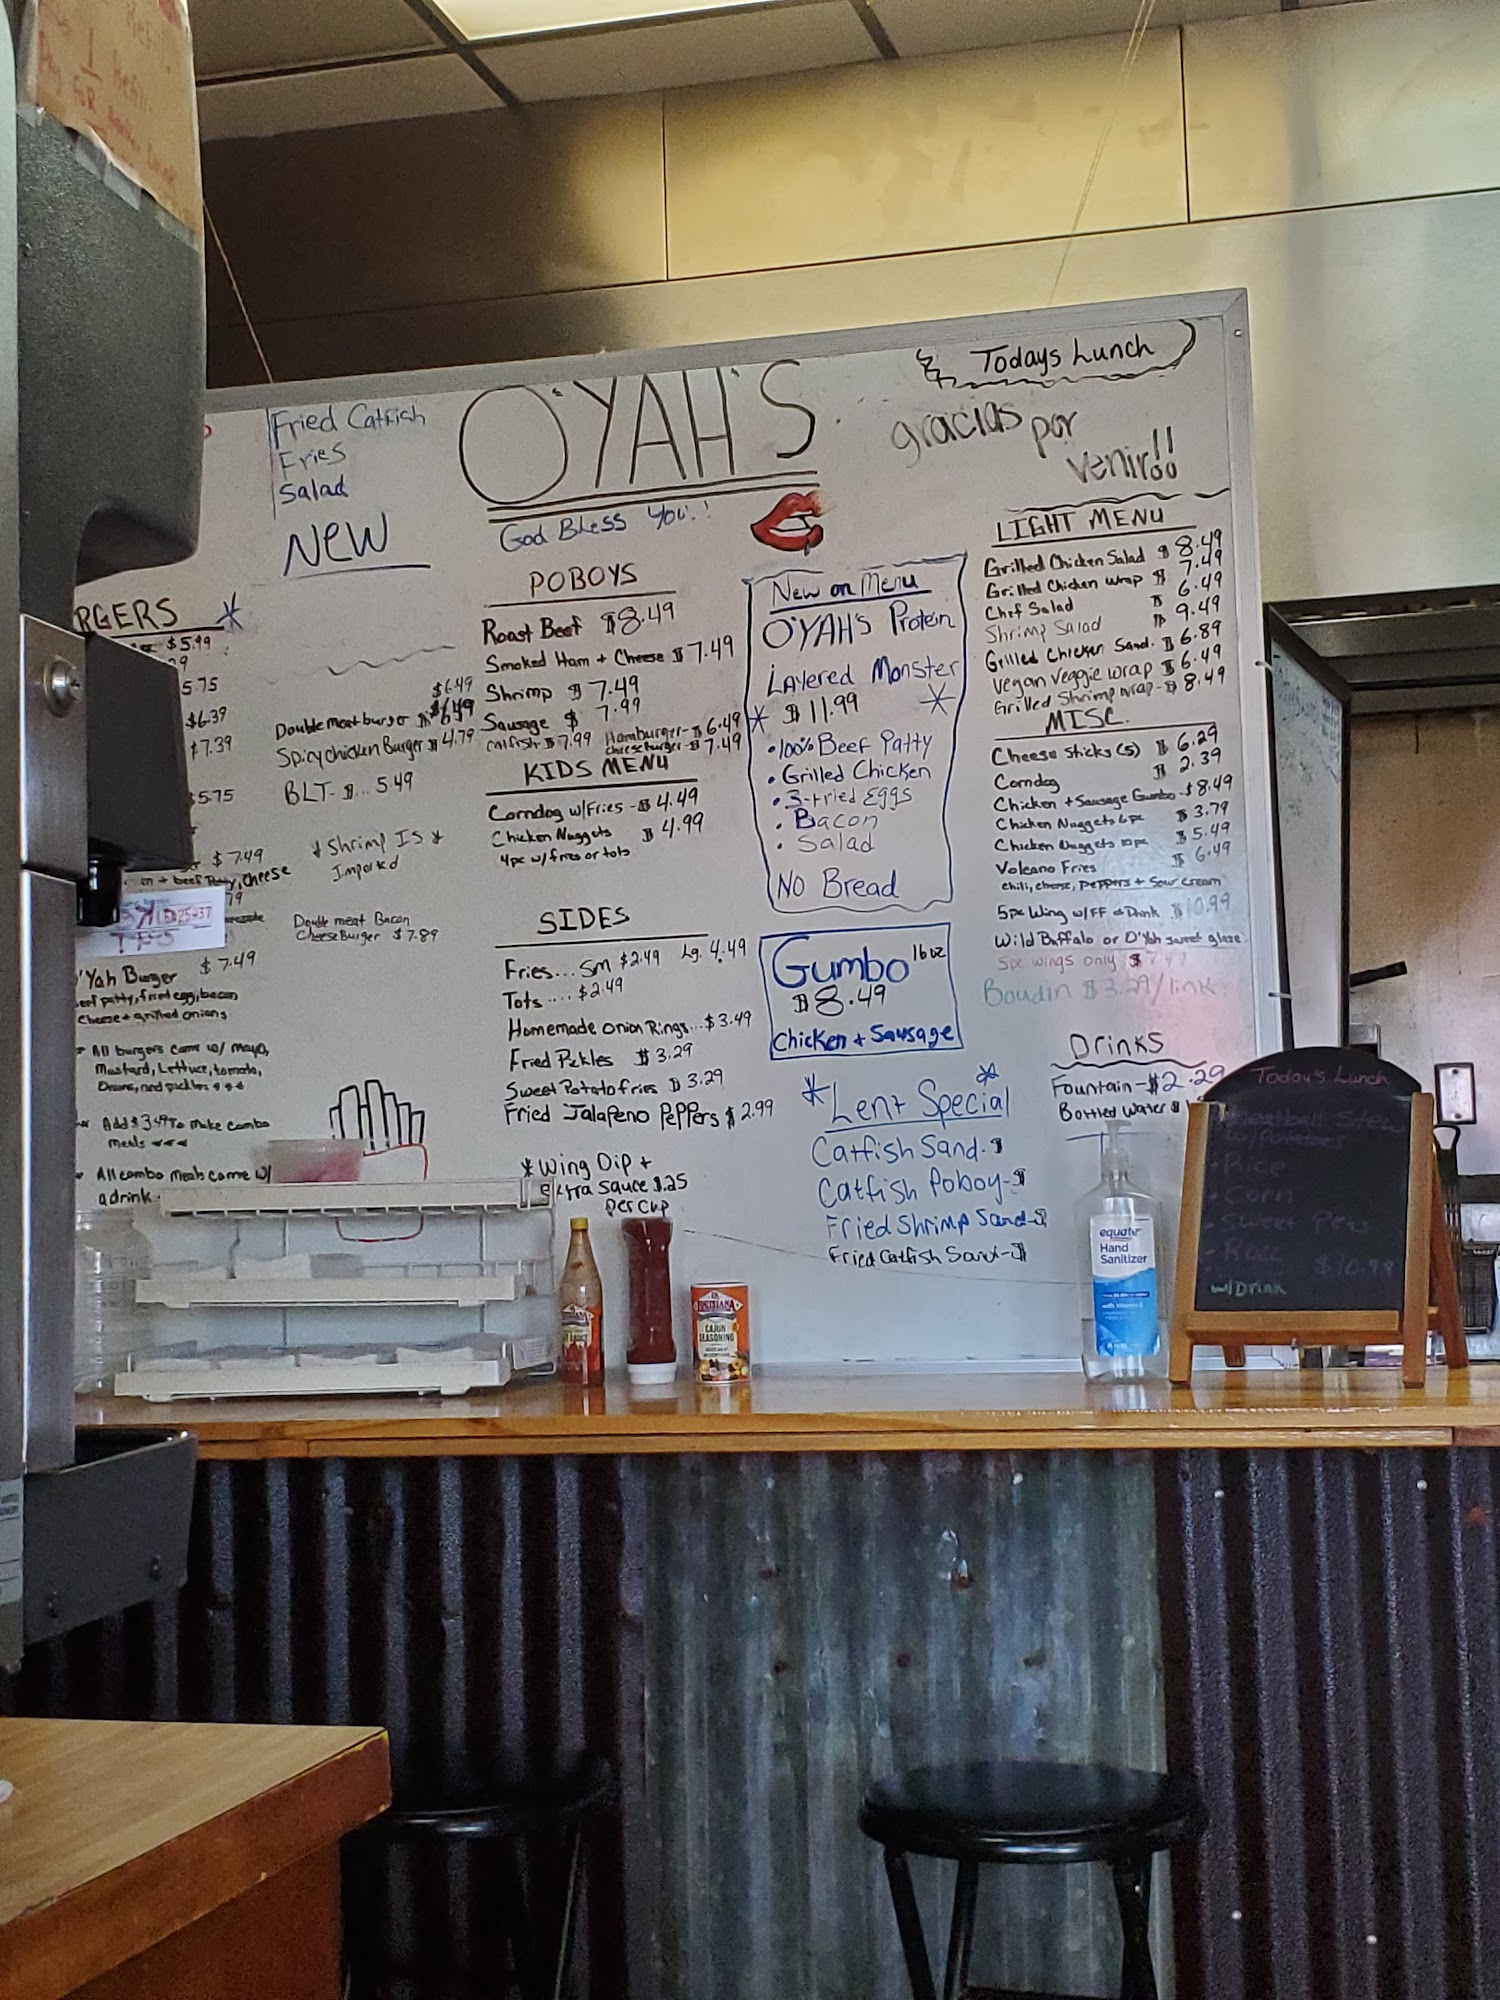 1 Refill
FOR
Fried Catfish
Fries
Salad
NEW
O'YAH'S
God Bless You!!
Todays Lunch
gracias por
venir!!
RGERS
$5.99
5.75
$6.39
$7.39
$5.75
$7.49
+ beef Patty, cheese
O'Yah Burger $7.49
beef patty, fried egg, bacon
cheese + grilled onions
All burgers come w/ mayo,
Mustard, Lettuce, tomato,
Onions, and pickles
Add $3.49 To Make Combo
meals
All combo meals come w/
a drink
$6.49
Double meat burger
Spicy chicken Burger $4.79
BLT- $... 5.49
* Shrimp IS *
Imported
Double meat Bacon
Cheese Burger $7.89
POBOYS
Roast Beef $8.49
Smoked Ham + Cheese $7.49
Shrimp $7.49
Sausage $7.99
Catfish $7.99 Hamburger- $6.49
cheese burger- $7.49
KIDS MENU
Corndog w/Fries - $4.49
Chicken Nuggets $4.99
4pc w/ fries or tots
SIDES
Fries... Sm $2.49 Lg. 4.49
Tots .... $2.49
Homemade Onion Rings... $3.49
Fried Pickles $3.29
Sweet Potato fries $3.29
Fried Jalapeno Peppers $2.99
* Wing Dip +
Extra Sauce $.25
Per cup
New on Menu
O'YAH'S Protein
Layered Monster
$11.99
• 100% Beef Patty
• Grilled Chicken
• 3-Fried Eggs
• Bacon
• Salad
NO Bread
Gumbo 16oz
$8.49
Chicken + Sausage
* Lent Special *
Catfish Sand. $
Catfish Poboy- $
Fried Shrimp Sand- $
Fried Catfish Sand- $
LIGHT MENU
Grilled Chicken Salad $8.49
Grilled Chicken Wrap $7.49
Chef Salad $6.49
Shrimp Salad $9.49
Grilled Chicken Sand. $6.89
Vegan Veggie Wrap $6.49
Grilled Shrimp Wrap- $8.49
MISC.
Cheese Sticks (5) $6.29
Corndog $2.39
Chicken + Sausage Gumbo- $8.49
Chicken Nuggets 6pc $3.79
Chicken Nuggets 10pc $5.49
Volcano Fries $6.49
Chili, cheese, peppers + Sour Cream
5pc Wing w/FF & Drink $10.99
Wild Buffalo or O'Yah sweet glaze
5pc wings only $7.97
Boudin $3.29/link
Drinks
Fountain - $2.29
Bottled Water $1
Today's Lunch
Meatball Stew
w/Potatoes
• Rice
• Corn
• Sweet Peas
• Roll $10.99
w/Drink
equate
Hand
Sanitizer
LOUISIANA
CAJUN
SEASONING